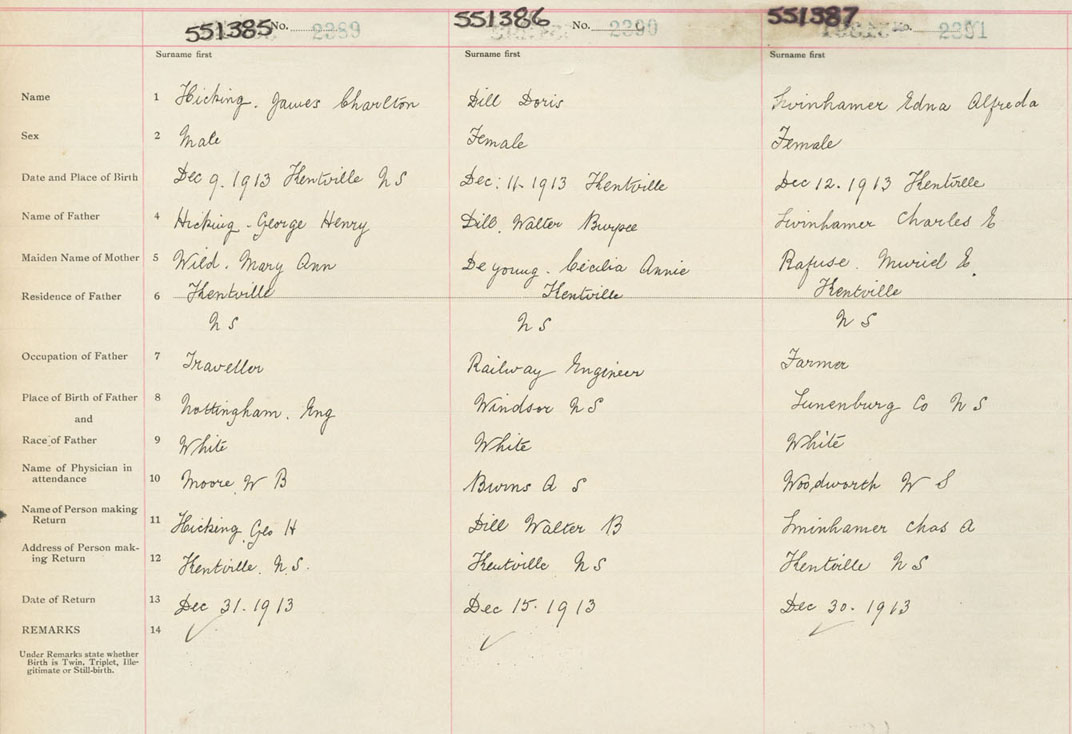 551385 No. 2389 551386 No. 2390 551387 No. 2391
Surname first Surname first Surname first
Name 1 Hicking. James Charlton Dill Doris Swinhamer Edna Alfreda
Sex 2 Male Female Female
Date and Place of Birth Dec 9. 1913 Kentville N S Dec: 11-1913 Kentville Dec 12. 1913 Kentville
Name of Father 4 Hicking - George Henry Dill, Walter Burpee Swinhamer Charles E
Maiden Name of Mother 5 Wild. Mary Ann De young. Cecilia Annie Rafuse. Muriel E.
Residence of Father 6 Kentville Kentville Kentville
N S N S N S
Occupation of Father 7 Traveller Railway Engineer Farmer
Place of Birth of Father 8 Nottingham. Eng Windsor N S Lunenburg Co N S
and
Race of Father 9 White White White
Name of Physician in
attendance 10 Moore, W B Burns A S Woodworth W S
Name of Person making
Return 11 Hicking, Geo H Dill Walter B Swinhamer Chas A
Address of Person mak-
ing Return 12 Kentville. N.S. Kentville N S Kentville N S
Date of Return 13 Dec 31. 1913 Dec 15. 1913 Dec 30. 1913
REMARKS 14
Under Remarks state whether
Birth is Twin, Triplet, Ille-
gitimate or Still-birth.